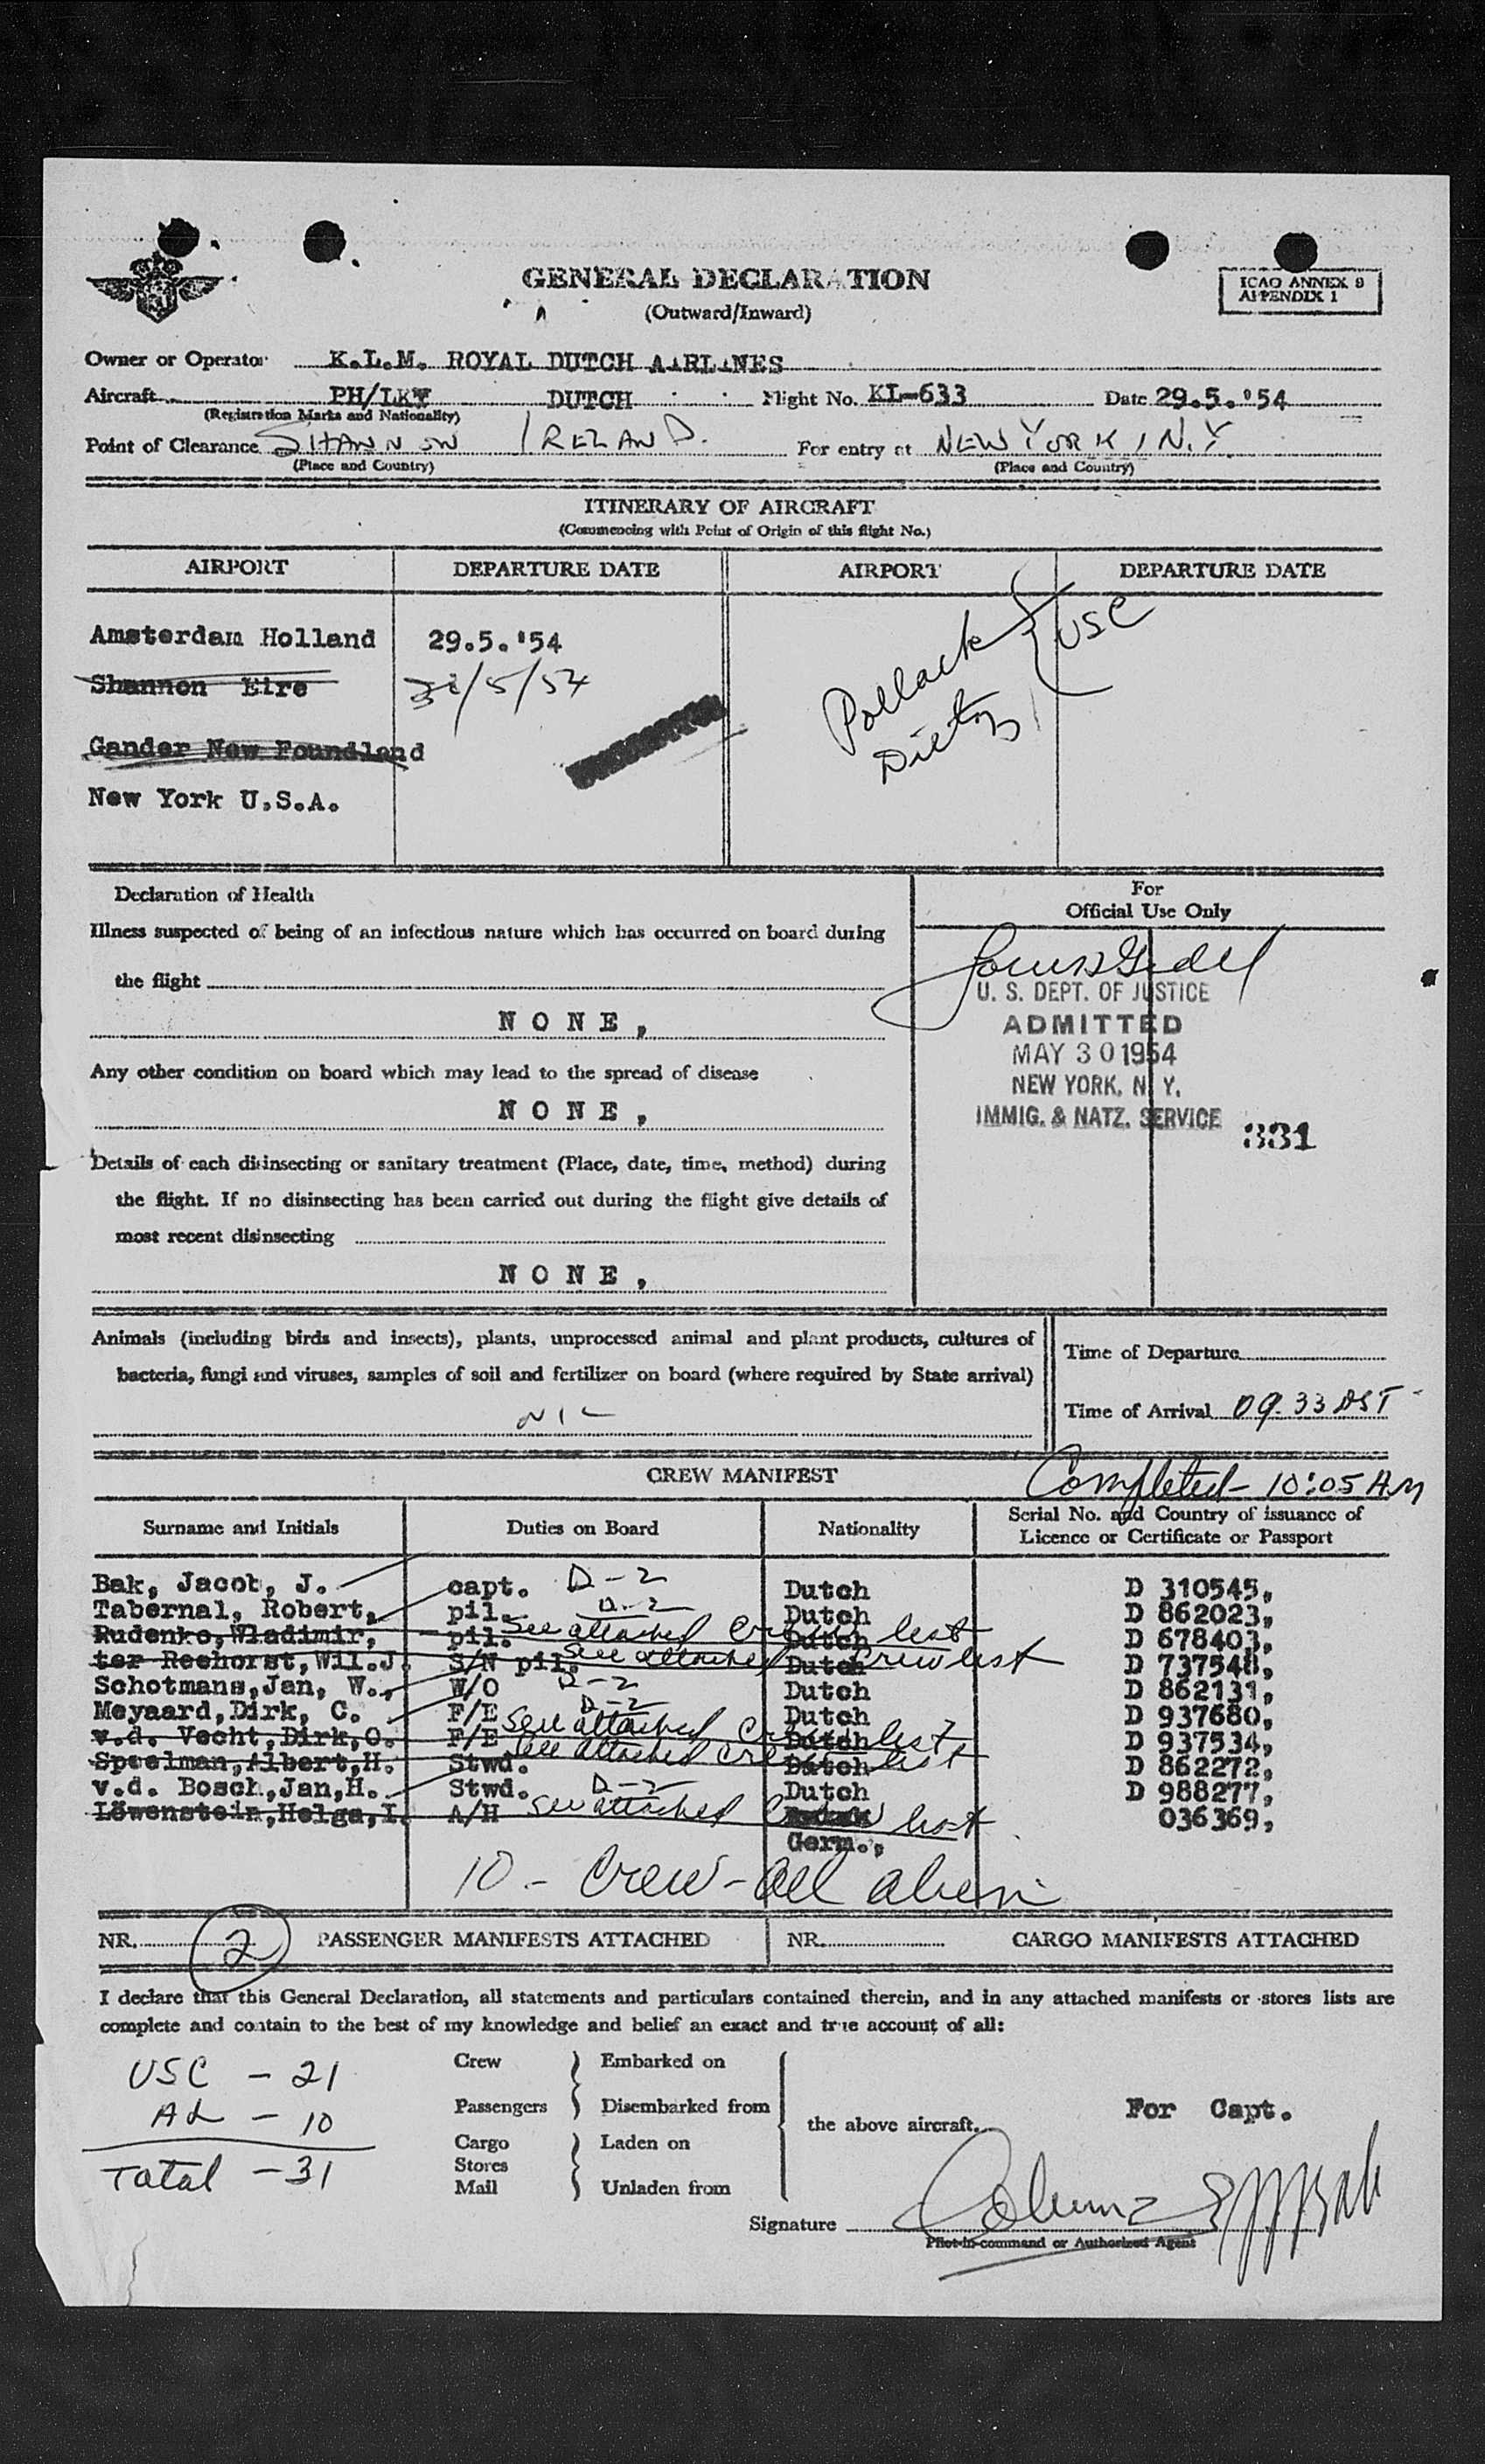 GENERAL DECLARATION
(Outward/Inward)
ICAO ANNEX 9
APPENDIX 1
Owner or Operator K.L.M. ROYAL DUTCH AIRLINES
Aircraft PH/LKY DUTCH Flight No. KL-633 Date 29.5.'54
(Registration Marks and Nationality)
Point of Clearance SHANNON IRELAND. For entry at NEW YORK, N.Y.
(Place and Country) (Place and Country)
ITINERARY OF AIRCRAFT
(Commencing with Point of Origin of this flight No.)
AIRPORT DEPARTURE DATE AIRPORT DEPARTURE DATE
Amsterdam Holland 29.5.'54
Shannon Eire /5/54
Gander New Foundland
New York U.S.A.
Pollack
Dietz
USC
Declaration of Health
Illness suspected of being of an infectious nature which has occurred on board during
the flight
NONE,
Any other condition on board which may lead to the spread of disease
NONE,
Details of each disinsecting or sanitary treatment (Place, date, time, method) during
the flight. If no disinsecting has been carried out during the flight give details of
most recent disinsecting
NONE,
For
Official Use Only
U. S. DEPT. OF JUSTICE
ADMITTED
MAY 30 1954
NEW YORK, N. Y.
IMMIG. & NATZ. SERVICE 331
Animals (including birds and insects), plants, unprocessed animal and plant products, cultures of
bacteria, fungi and viruses, samples of soil and fertilizer on board (where required by State arrival)
NIL
Time of Departure
Time of Arrival 09.33 DST
CREW MANIFEST
Completed - 10:05 AM
Surname and Initials Duties on Board Nationality Serial No. and Country of issuance of
Licence or Certificate or Passport
Bak, Jacob, J. capt. D-2 Dutch D 310545,
Tabernal, Robert, pil. D-2 Dutch D 862023,
Rudenko,Wladimir, pil. See attached Crew list Dutch D 678403,
ter Reehorst,Wil.J. S/N pil. See attached Crew list Dutch D 737548,
Schotmans,Jan, W., W/O D-2 Dutch D 862131,
Meyaard,Dirk, C. F/E D-2 Dutch D 937680,
v.d. Vecht,Dirk,O. F/E See attached Crew list Dutch D 937534,
Speelman,Albert,H. Stwd. See attached crew list Dutch D 862272,
v.d. Bosch,Jan,H. Stwd. D-2 Dutch D 988277,
Löwenstein,Helga,I. A/H See attached Crew list 036369,
Germ.,
10 - Crew - all alien
NR. 2 PASSENGER MANIFESTS ATTACHED NR. CARGO MANIFESTS ATTACHED
I declare that this General Declaration, all statements and particulars contained therein, and in any attached manifests or stores lists are
complete and contain to the best of my knowledge and belief an exact and true account of all:
USC - 21
AL - 10
Total - 31
Crew Embarked on
Passengers Disembarked from
Cargo Laden on
Stores
Mail Unladen from
the above aircraft.
For Capt.
Signature
Pilot-in-command or Authorized Agent